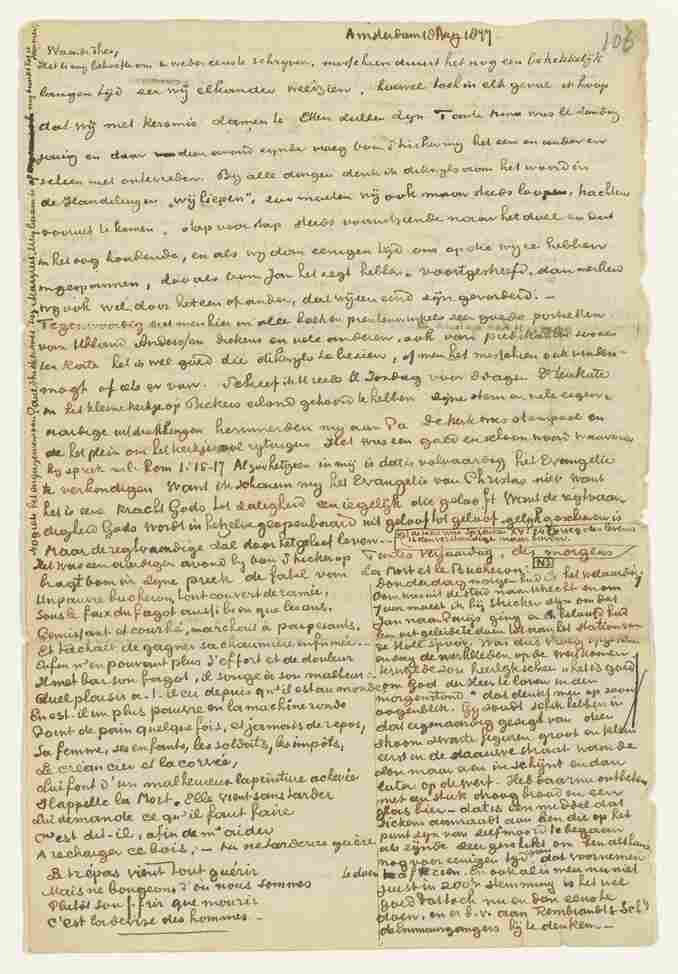 Amsterdam 18 Aug 1877
106
Waarde Theo,
Het is mij behoefte om U weder eens te schrijven, misschien duurt het nog een betrekkelijk
langen tijd eer wij elkander weerzien, hoewel toch in elk geval ik hoop
dat wij met Kersmis zamen te Etten zullen zijn. Tante Mina was ll Zondag
jarig en daar dien avond zijnde vroeg Oom Stricker mij het een en ander en
scheen niet ontevreden. Bij alle dingen denk ik dikwijls aan het woord in
de Handelingen „wij liepen", zoo moeten wij ook maar steeds loopen, trachten
vooruit te komen, stap voor stap steeds vooruitziende naar het doel en dat
in het oog houdende, en als wij dan eenigen tijd ons op die wijze hebben
ingespannen, dus als Oom Jan het zegt hebben voortgestreefd, dan merken
wij ook wel, door het een of ander, dat wij ten eind zijn gevorderd. —
Tegenwoordig ziet men hier in alle boek en prentenwinkels zeer goede portretten
van Uhland Andersson Dickens en vele anderen, ook van predikanten
ten Kate het is wel goed die dikwijls te bezien, of men het misschien ook vinden
mogt of iets er van. Schreef ik U reeds ll Zondag voor 8 dagen Ds Jeukate
in het kleine kerkje op Bickers eiland gehoord te hebben. Zijne stem en vele eigen-
aardige uitdrukkingen herinnerden mij aan Pa. de kerk was stampvol en
op het plein om het kerkje rijtuigen. Het was een goed en schoon woord waarover
hij sprak nl. Rom 1:15-17 Alzoo hetgeen in mij is dat is volvaardig het Evangelie
te verkondigen Want ik schaam mij het Evangelie van Christus niet Want
het is eene kracht Gods tot zaligheid een iegelijk die gelooft Want de regtvaar-
digheid Gods wordt in hetzelve geopenbaard uit geloof tot geloof gelijk geschreven is
Maar de regtvaardige zal door het geloof leven. —
Het was een aardiger avond bij Oom Stricker op
bragt Oom in zijne preek de fabel van
Un pauvre bucheron, tout couvert de ramée,
Sous le faix du fagot aussi bien que les ans,
Gemissant et courbé, marchait à pas pesants,
Et tâchait de gagner sa chaumière enfumée. —
Enfin n'en pouvant plus d'effort et de douleur
Il met bas son fagot, il songe à son malheur :
Quel plaisir a-t-il eu depuis qu'il est au monde
En est-il un plus pauvre en la machine ronde
Point de pain quelquefois, et jamais de repos,
Sa femme, ses enfants, les soldats, les impôts,
Le créancier et la corvée,
Lui font d'un malheureux la peinture achevée
Il appelle la Mort. Elle vient sans tarder
Lui demande ce qu'il faut faire
C'est dit-il, afin de m'aider
A recharger ce bois; — tu ne tarderas guère
Le trépas vient tout guérir
Mais ne bougeons d'où nous sommes
Plutôt souffrir que mourir
C'est la devise des hommes —
Tantes verjaardag, des morgens
La Mort et le Bucheron:
Donderdag morgen had ik het wel aardig.
Oom was uit de stad naar Utrecht en om
7 uur moest ik bij Stricker zijn omdat
Jan naar Parijs ging en ik beloofd had
hem uit geleide te doen tot aan het station van
de Holl Spoor. Was dus vroeg opgestaan
en zag de werklieden op de werf komen
terwijl de zon heerlijk scheen. „het is goed
om God den Heer te loven in den
morgenstond" dat denkt men op zoo'n
oogenblik. Gij zoudt schik hebben in
dat eigenaardig gezigt van dien
stroom zwarte figuren, groot en klein
eerst in de naauwe straat waar de
zon maar even in schijnt en dan
later op de werf. Heb daarna ontbeten
met een stuk droog brood en een
glas bier — dat is een middel dat
Dickens aanraadt aan hen die op het
punt zijn van zelfmoord te begaan
als zijnde zeer geschikt om hen althans
nog voor eenigen tijd van dat voornemen
te doen afzien. En ook al is men nu niet
juist in zoo'n stemming is het wel
goed dat toch nu en dan eens te
doen, en er b.v. aan Rembrandts Sch.ij
de Emmausgangers bij te denken. —